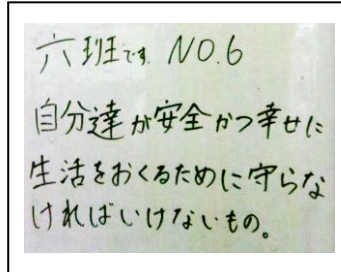 六班です。NO.6
自分達が安全かつ幸せに
生活をおくるために守らな
ければいけないもの。